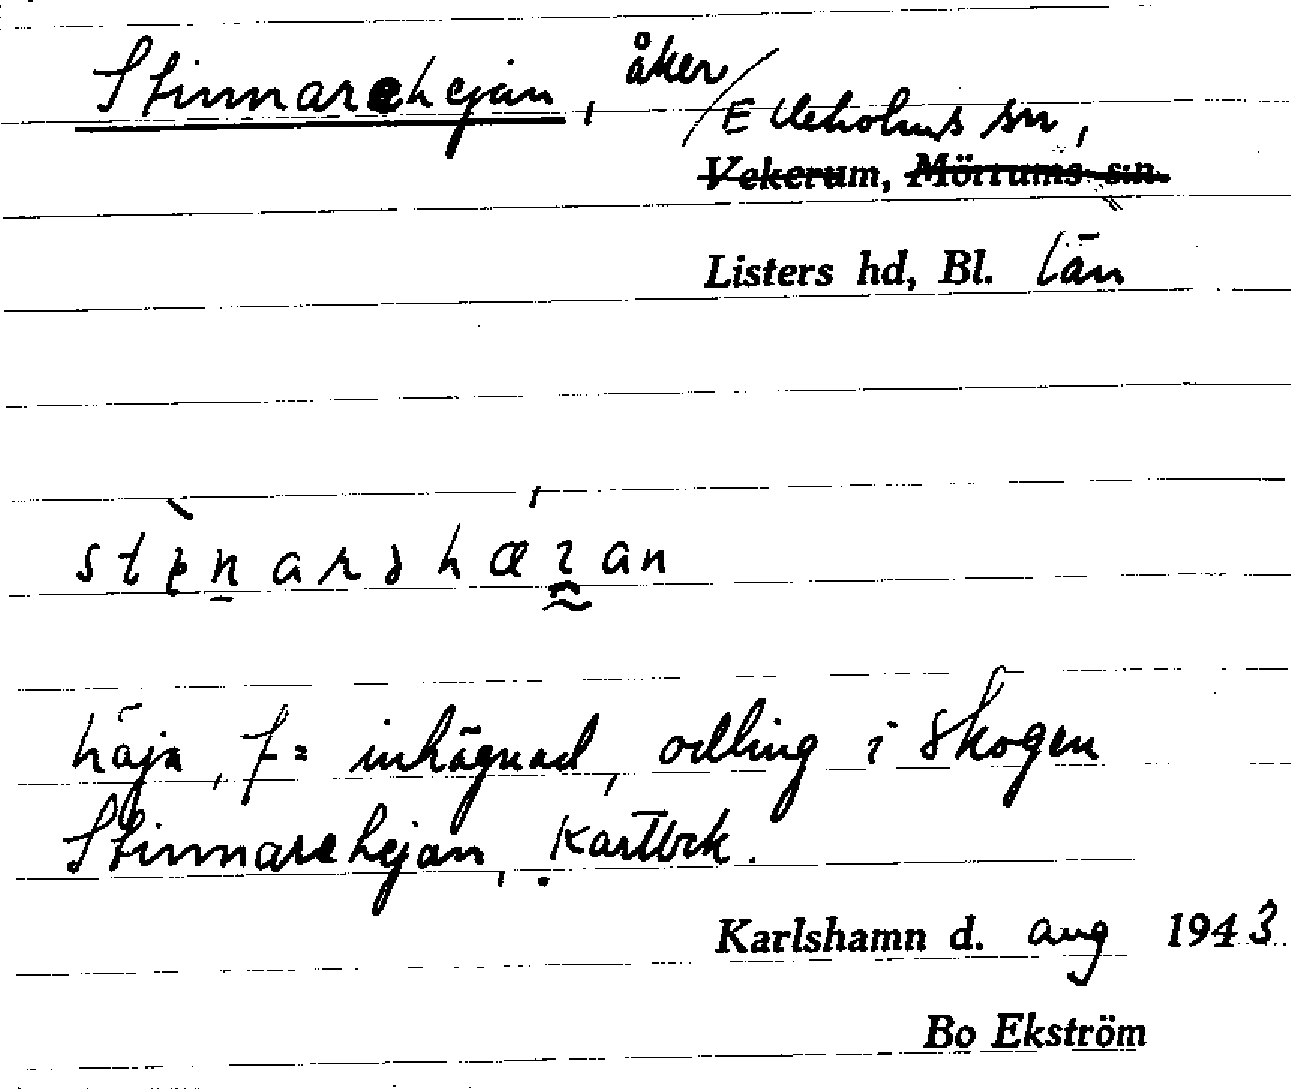 Stinnarehejan, åker
Elleholms sn,
Vekerum, Mörrums sn.
Listers hd, Bl. län
stenarshæʒan
häja, f = inhägnad, odling i skogen
Stinnarehejan, Kartbok.
Karlshamn d. aug 1943
Bo Ekström